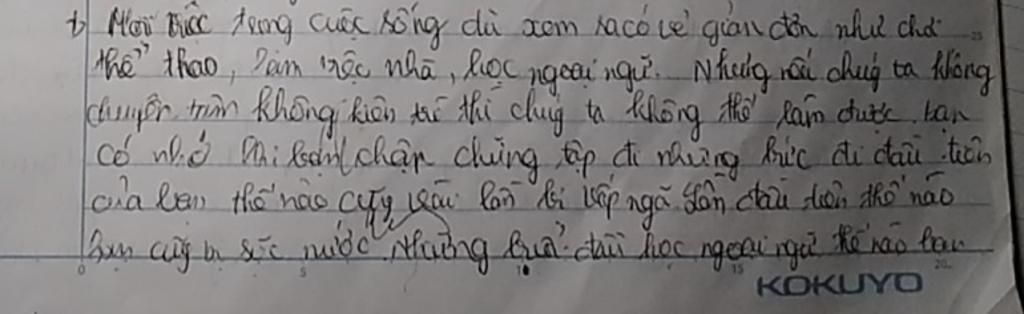 b Mọi việc trong cuộc sống dù xem ra có vẻ giản đơn như chơi
thể thao, làm việc nhà, học ngoại ngữ. Nhưng nếu chúng ta không
chuyên tâm không kiên trì thì chúng ta không thể làm được. bạn
có nhớ khi bạn chập chững tập đi những bước đi đầu tiên
của bạn thế nào cũng vài lần bị vấp ngã lần đầu tiên thế nào
bạn cũng bị sặc nước. Những buổi đầu học ngoại ngữ thế nào bạn
KOKUYO